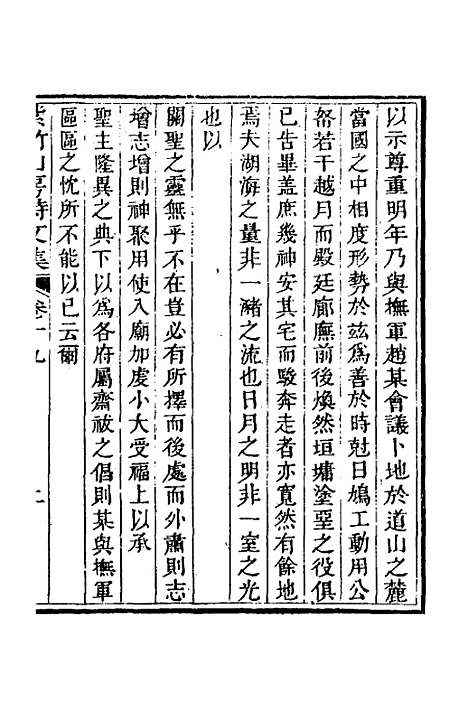 以示尊重明年乃與撫軍趙某會議卜地於道山之麓
當國之中相度形勢於兹為善於時尅日鳩工動用公
帑若干越月而殿廷廊廡前後煥然垣墉塗堊之役俱
已告畢蓋庶幾神安其宅而駿奔走者亦寬然有餘地
焉夫湖海之量非一瀦之流也日月之明非一室之光
也以
關聖之靈無乎不在豈必有所擇而後處而外肅則志
增志增則神聚用使入廟加虔小大受福上以承
聖主隆異之典下以為各府屬齋祓之倡則某與撫軍
區區之忱所不能以已云爾
紫竹山房詩文集 卷十九